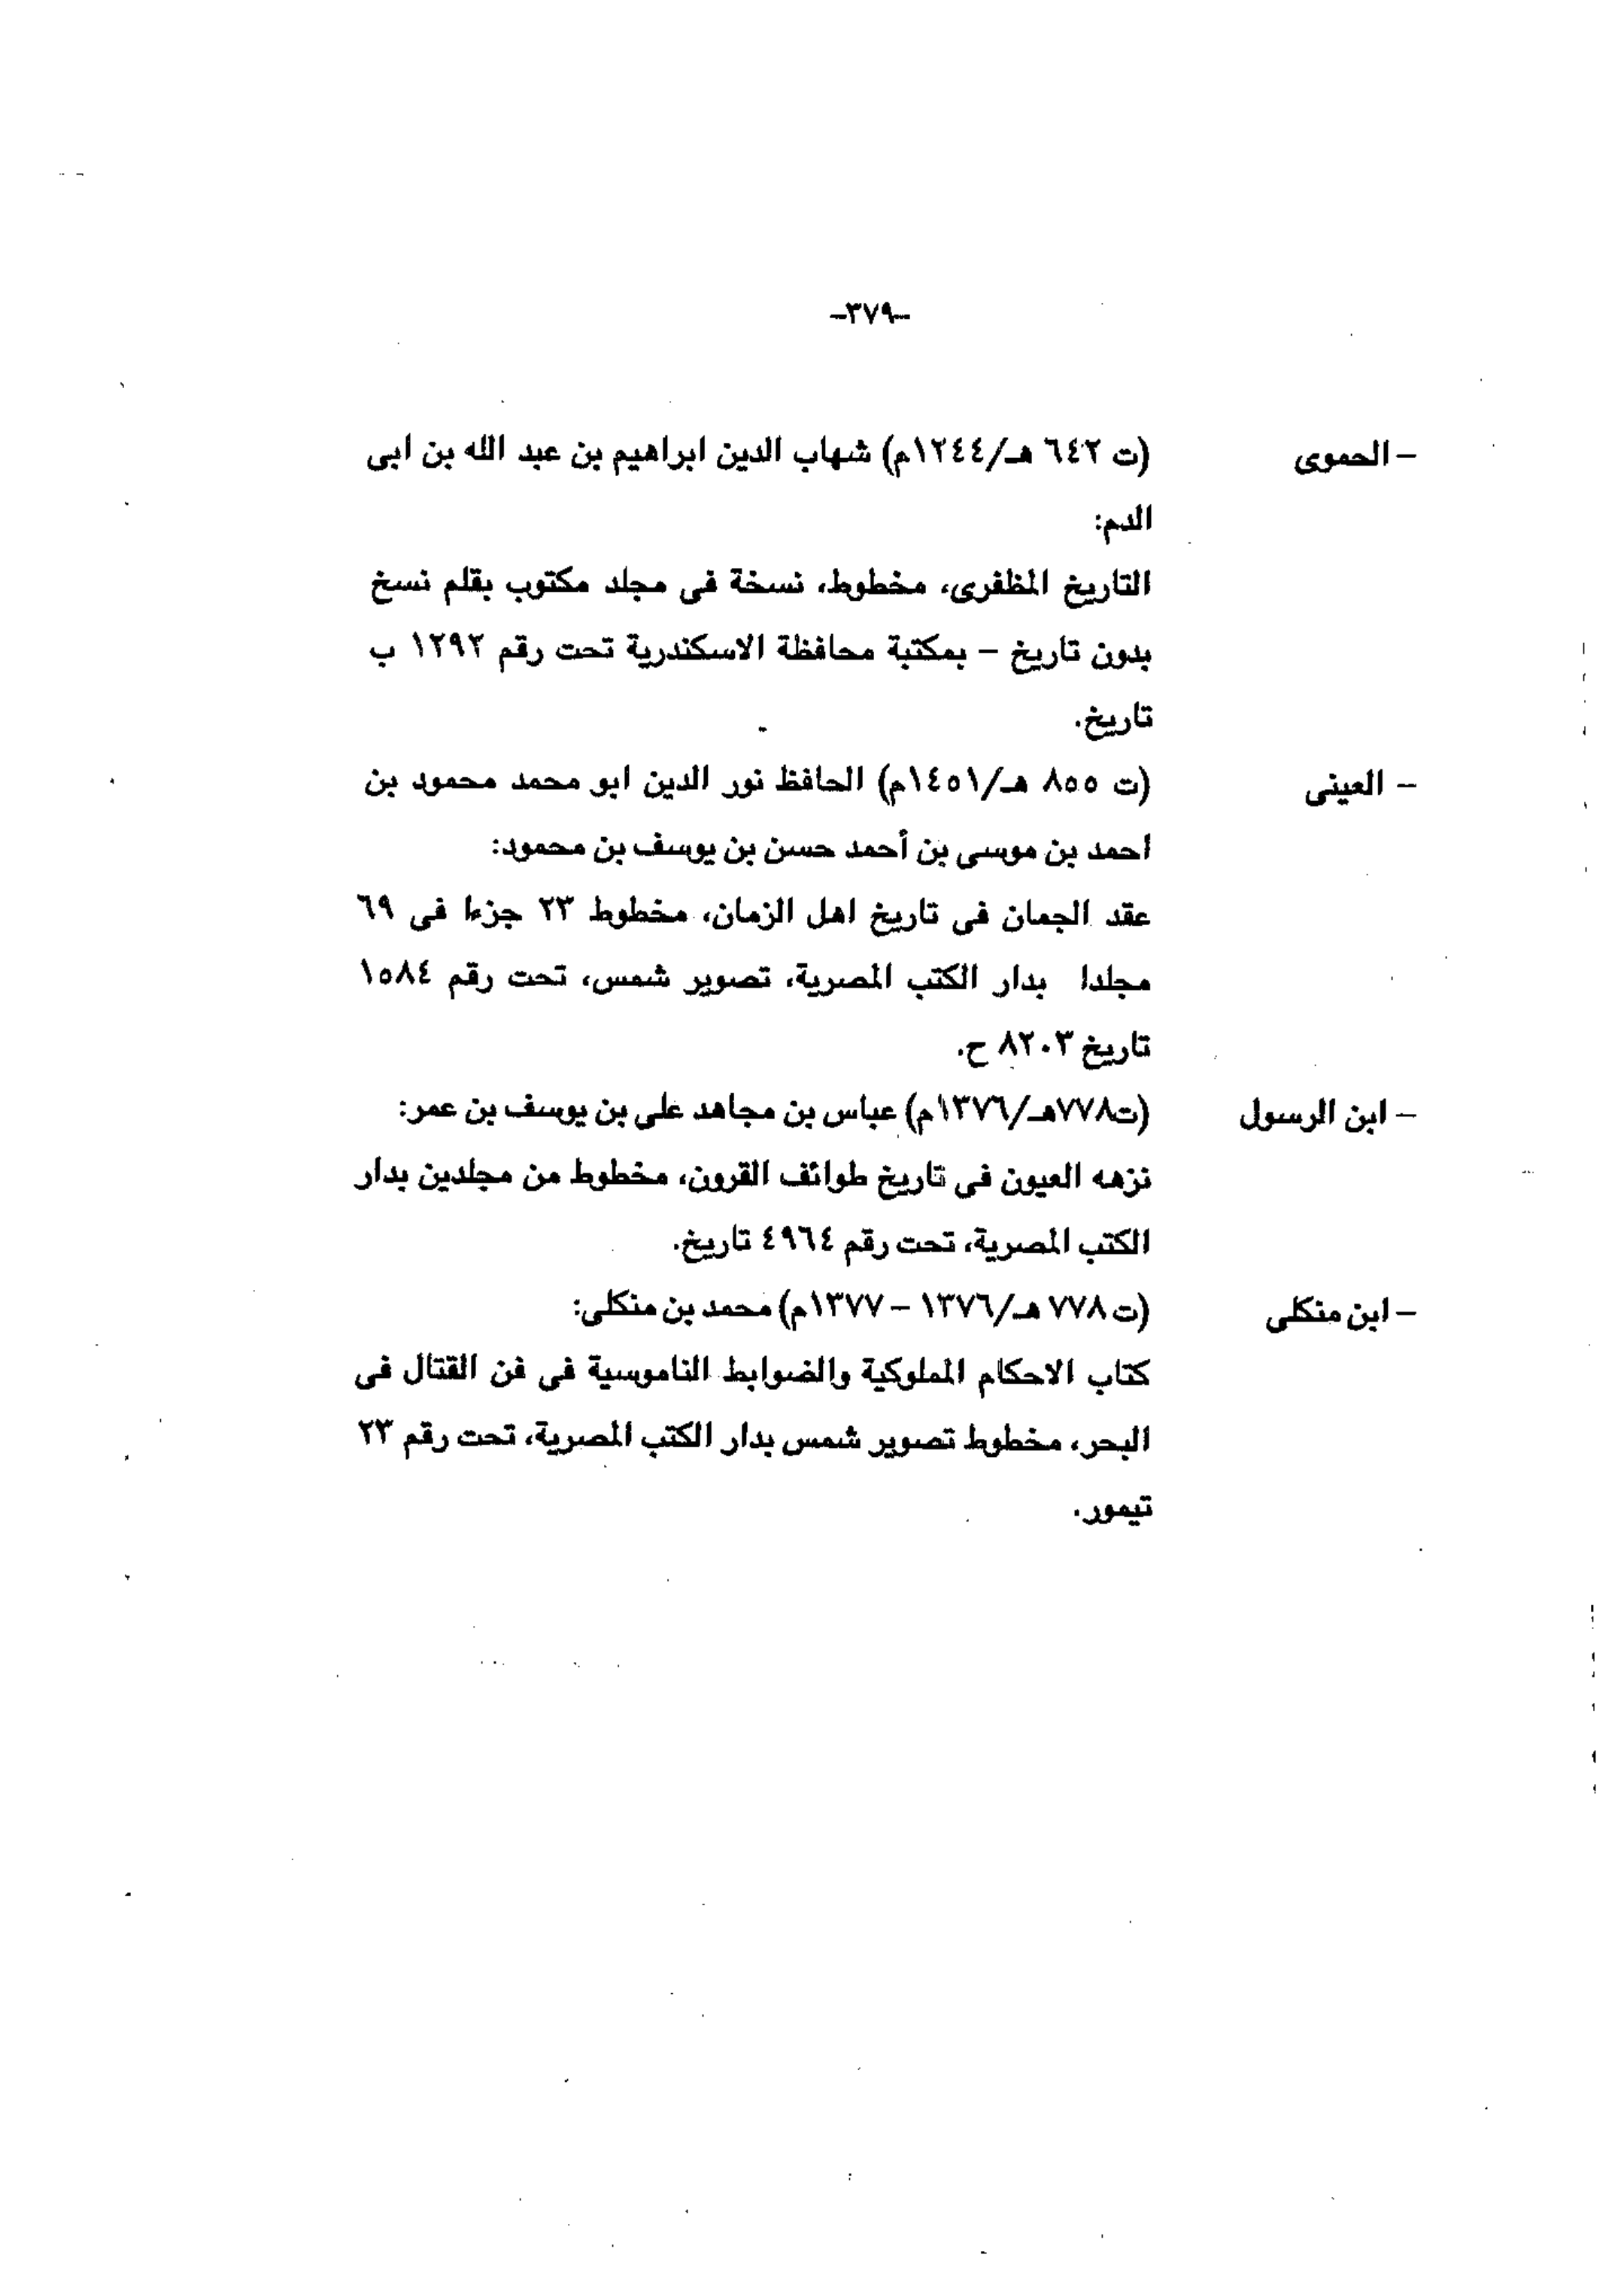 -٣٧٩-
- الحموى (ت ٦٤٢ هـ/١٢٤٤م) شهاب الدين ابراهيم بن عبد الله بن ابى
الدم:
التاريخ المظفرى، مخطوط، نسخة فى مجلد مكتوب بقلم نسخ
بدون تاريخ - بمكتبة محافظة الاسكندرية تحت رقم ١٢٩٢ ب
تاريخ.
- العينى (ت ٨٥٥ هـ/١٤٥١م) الحافظ نور الدين ابو محمد محمود بن
احمد بن موسى بن أحمد حسن بن يوسف بن محمود:
عقد الجمان فى تاريخ اهل الزمان، مخطوط ٢٣ جزءا فى ٦٩
مجلدا بدار الكتب المصرية، تصوير شمس، تحت رقم ١٥٨٤
تاريخ ٨٢٠٣ ح.
- ابن الرسول (ت٧٧٨هـ/١٣٧٦م) عباس بن مجاهد على بن يوسف بن عمر:
نزهه العيون فى تاريخ طوائف القرون، مخطوط من مجلدين بدار
الكتب المصرية، تحت رقم ٤٩٦٤ تاريخ.
- ابن منكلى (ت ٧٧٨ هـ/١٣٧٦ - ١٣٧٧م) محمد بن منكلى:
كتاب الاحكام الملوكية والضوابط الناموسية فى فن القتال فى
البحر، مخطوط تصوير شمس بدار الكتب المصرية، تحت رقم ٢٣
تيمور.